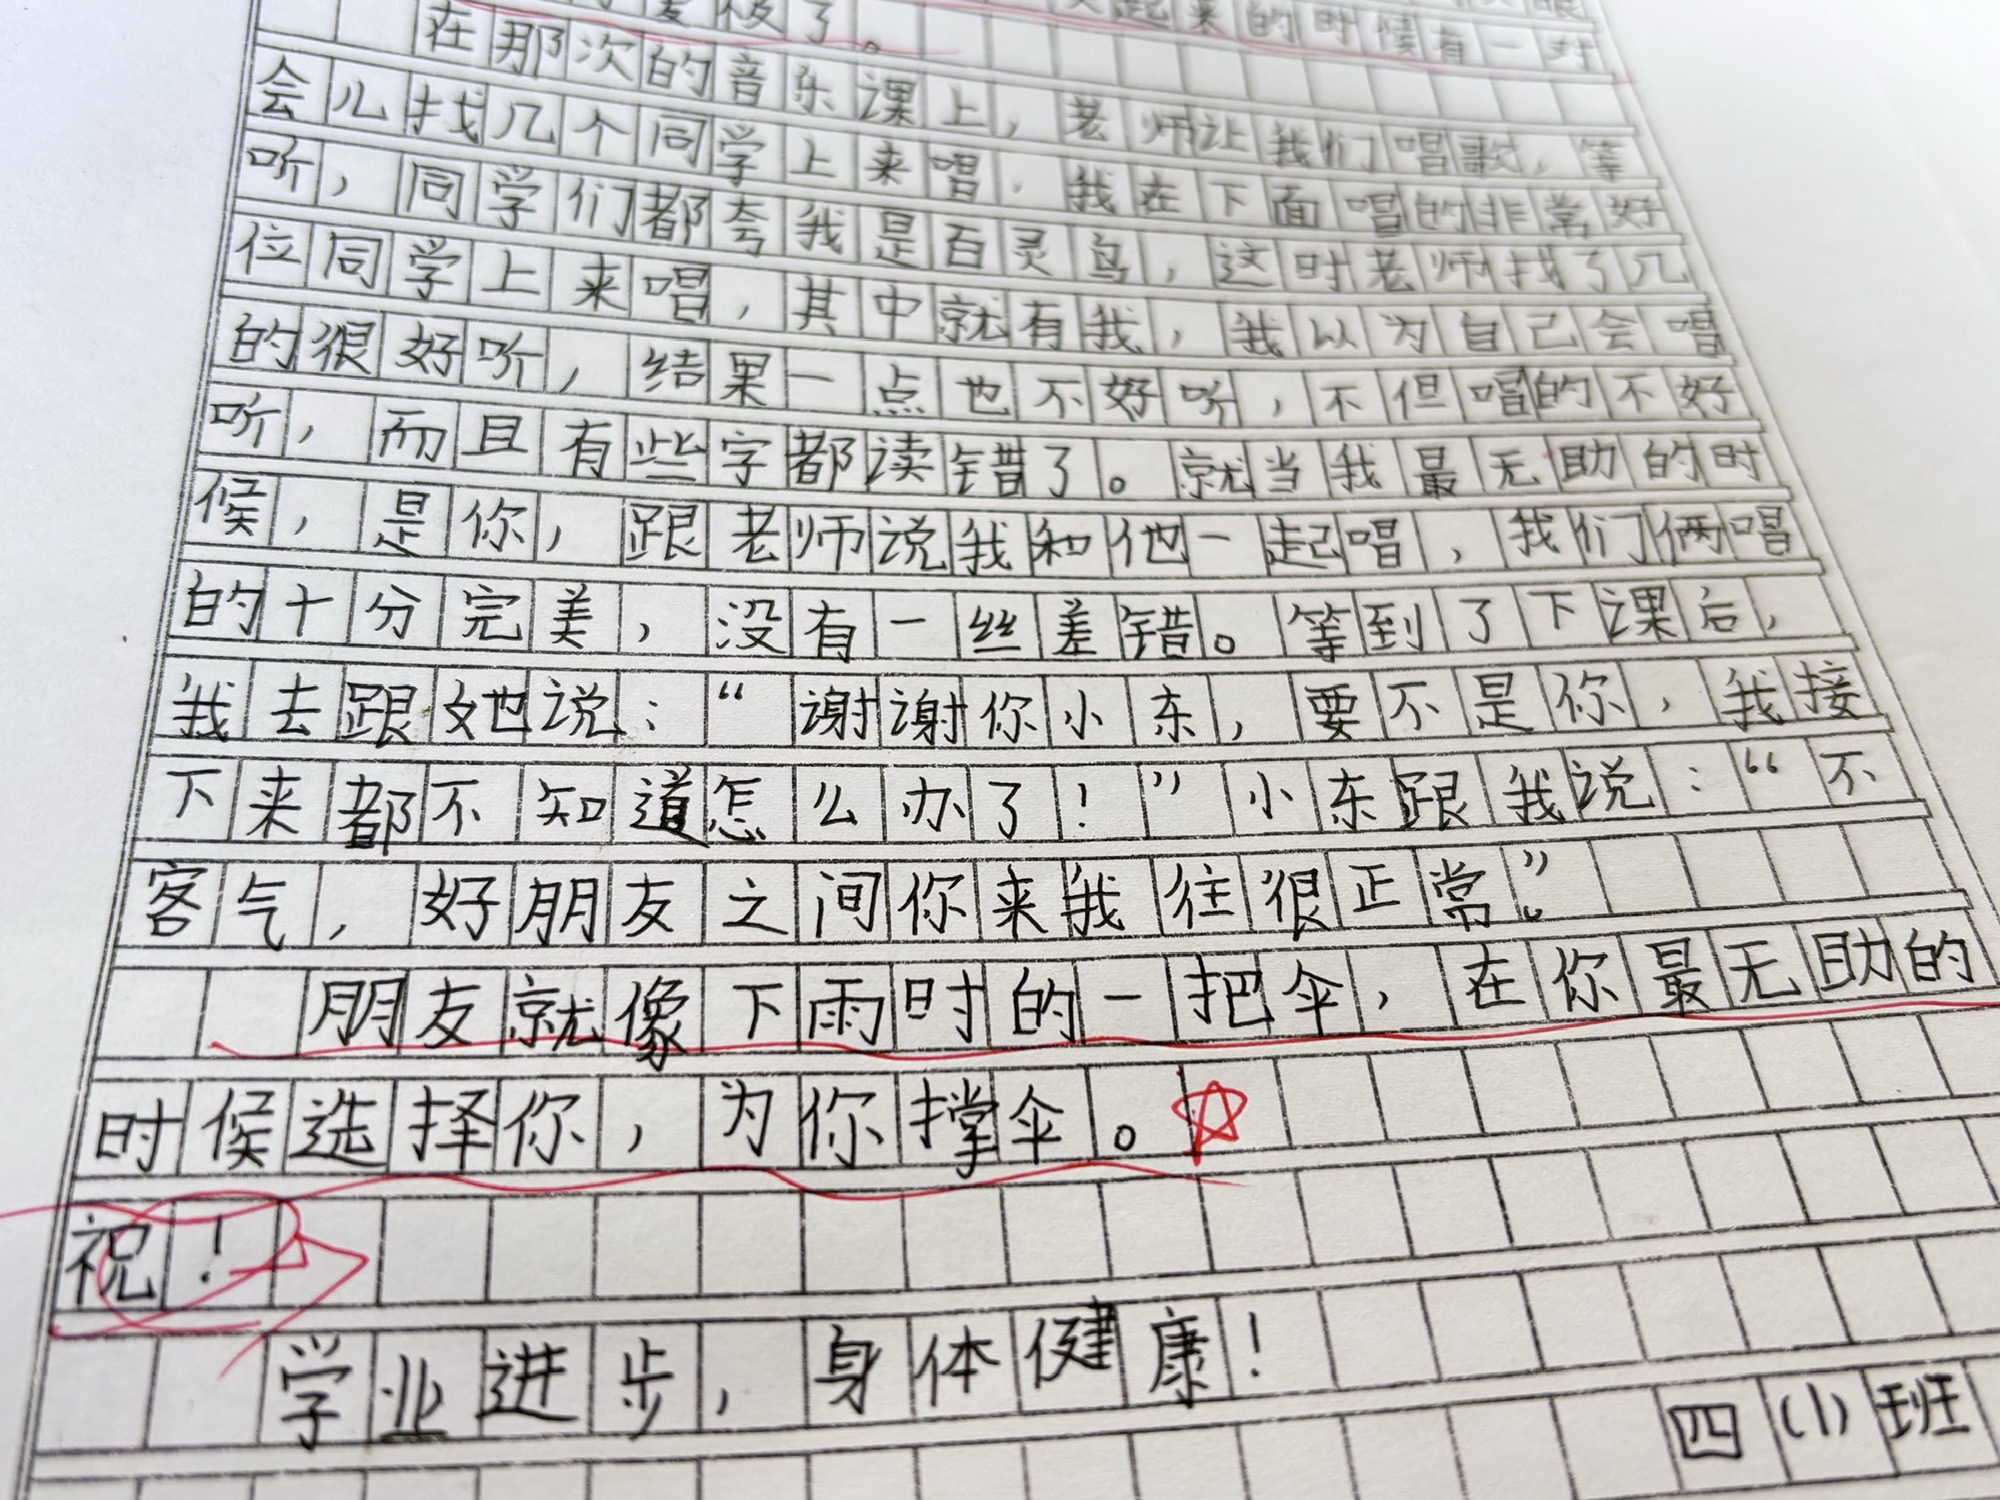 极了。
起来的时候有一对
在那次的音乐课上，老师让我们唱歌，等
会儿找几个同学上来唱，我在下面唱的非常好
听，同学们都夸我是百灵鸟，这时老师找了几
位同学上来唱，其中就有我，我以为自己会唱
的很好听，结果一点也不好听，不但唱的不好
听，而且有些字都读错了。就当我最无助的时
候，是你，跟老师说我和他一起唱，我们俩唱
的十分完美，没有一丝差错。等到了下课后，
我去跟她说：“谢谢你小东，要不是你，我接
下来都不知道怎么办了！”小东跟我说：“不
客气，好朋友之间你来我往很正常。”
朋友就像下雨时的一把伞，在你最无助的
时候选择你，为你撑伞。
祝！
学业进步，身体健康！
四(1)班